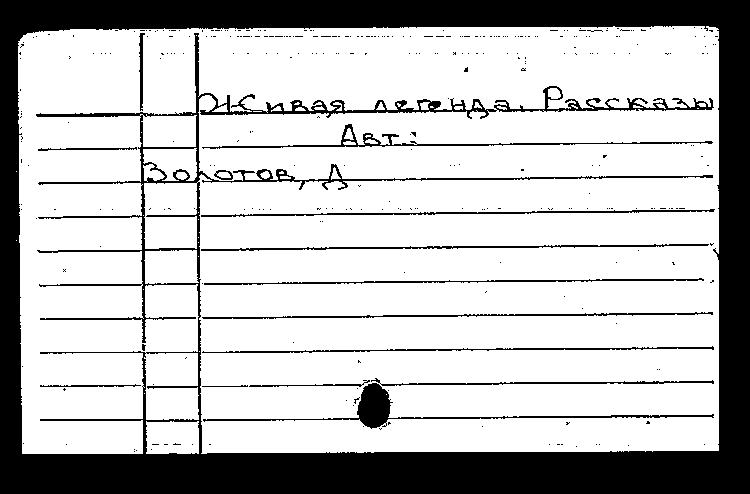 Живая легенда. Рассказы
Авт.:
Золотов, Д